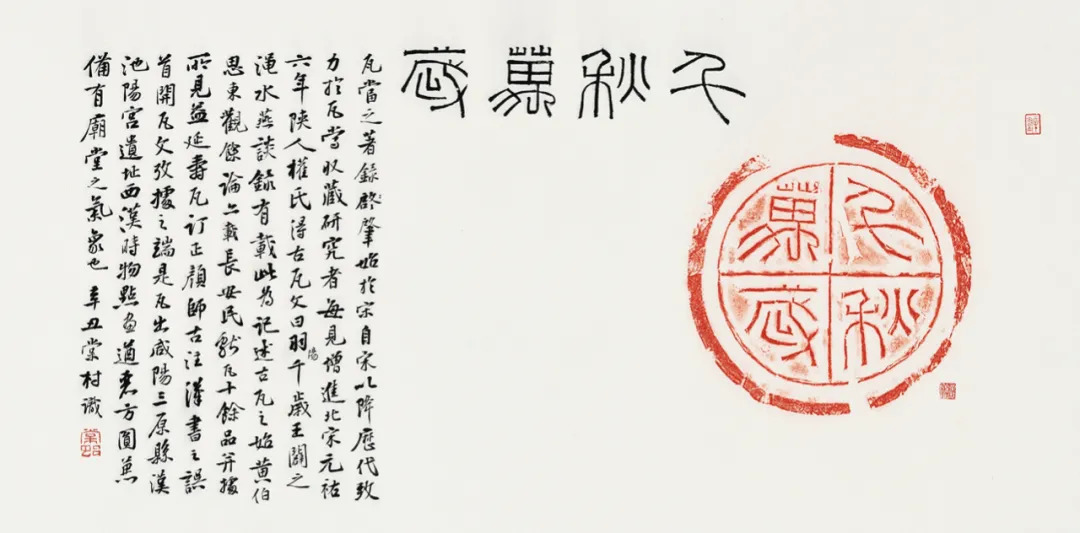 千秋萬歲
千秋
萬歲
瓦當之著錄肇始於宋自宋以降歷代致
力於瓦當收藏研究者每見增進北宋元祐
六年陝人權氏得古瓦文曰羽陽千歲王闢之
澠水燕談錄有載此為記述古瓦之始黃伯
思東觀餘論亦載長安民獻瓦十餘品并據
所見益延壽瓦訂正顏師古注漢書之誤
首開瓦文攷據之端是瓦出咸陽三原縣漢
池陽宮遺址西漢時物點畫遒方圓兼
備有廟堂之氣象也 辛丑棠村識